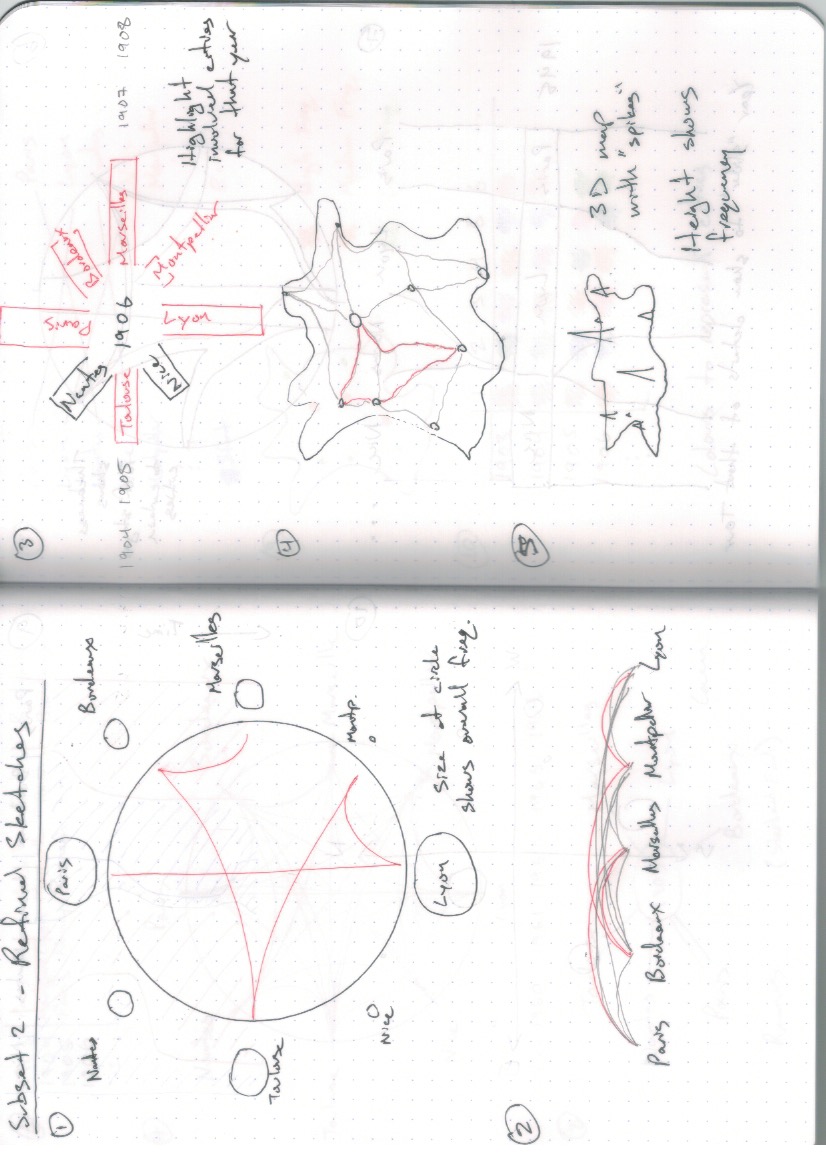 Subset 2 - Refined Sketches
1
Paris
Nantes
Bordeaux
Marseilles
Toulouse
Montp.
Nice
Lyon
Size of circle
shows overall freq.
2
Paris Bordeaux Marseilles Montpellier Lyon
3
Paris
Nantes
Bordeaux
1904 1905 Toulouse 1906 Marseilles 1907 1908
Nice
Lyon
Montpellier
Highlight
involved cities
for that year
4
5
3D map
with "spikes"
Height shows
frequency